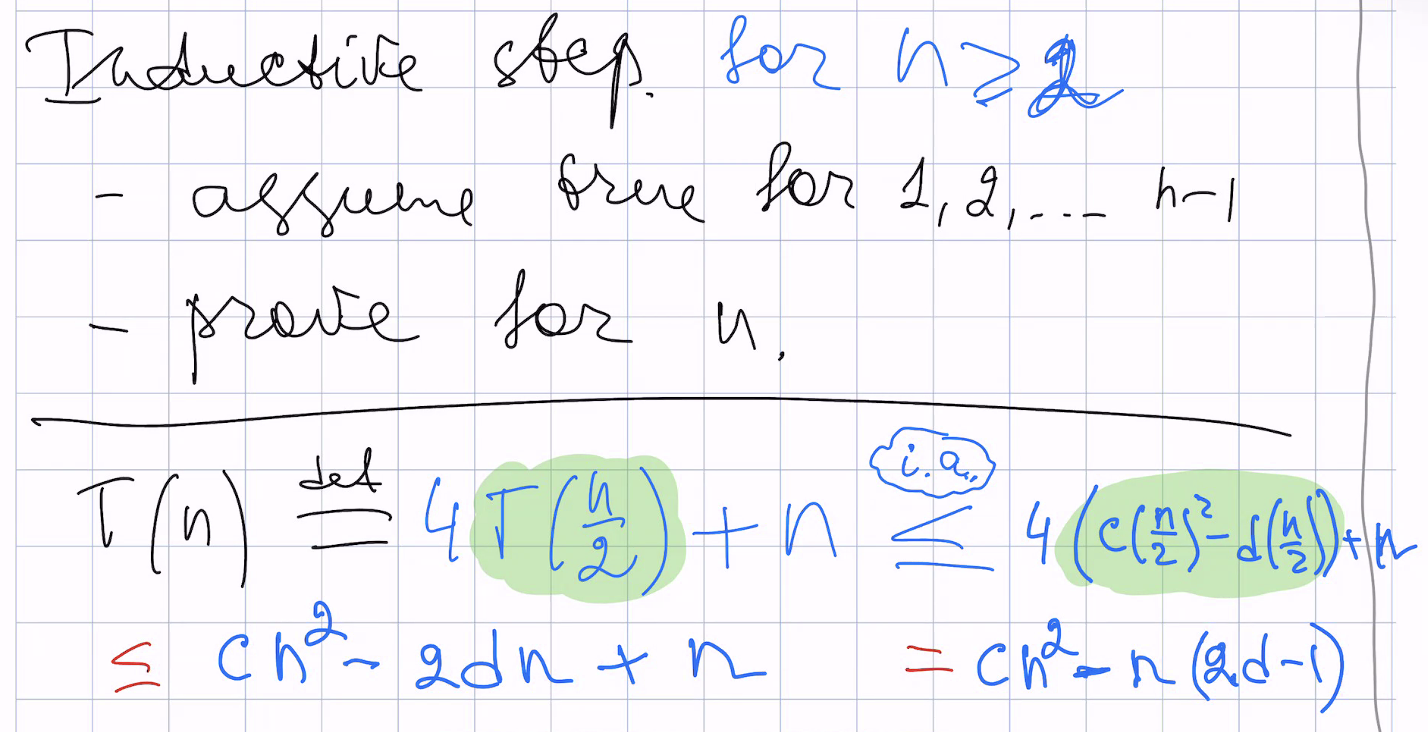 Inductive step. for n ≥ 2
- assume true for 1, 2, .... n-1
- prove for n.
T(n) def = 4T(n/2) + n i.a. ≤ 4(c(n/2)² - d(n/2)) + n
≤ cn² - 2dn + n = cn² - n(2d-1)